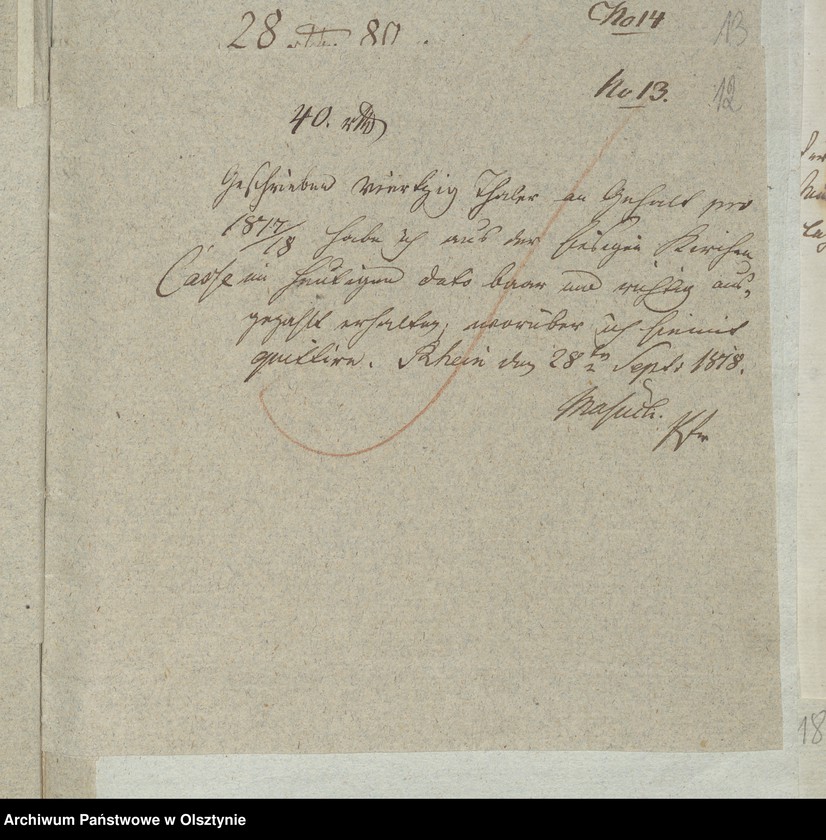 No 14
13
28 rth. 80.
No 13.
12
40. rth
Geschrieben vierzig Thaler an Gehalt pro
1817/18 habe ich aus der hiesigen Kirchen
Casse im heutigen dato baar und richtig aus-
gezahlt erhalten, worüber ich hiemit
quittire. Rhein den 28ten Septr 1818.
Masuch.
Pfr
18
Archiwum Państwowe w Olsztynie